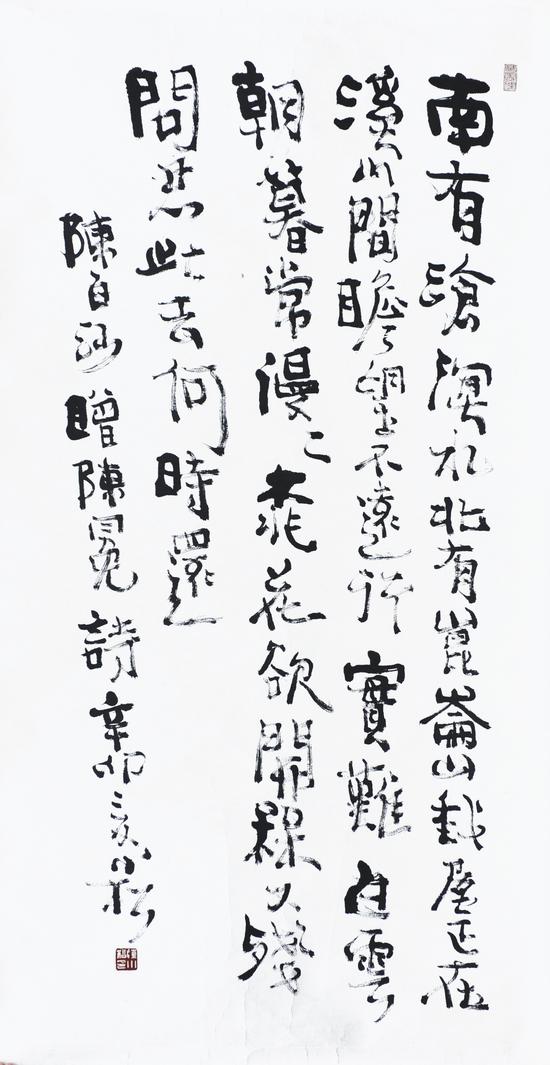 南有滄溟水北有崑崙山我屋正在
間瞻望不遠許實難白雲
朝暮常漫々桃花欲開梨又殘
問此去何時還
陳白沙贈陳冕詩辛卯